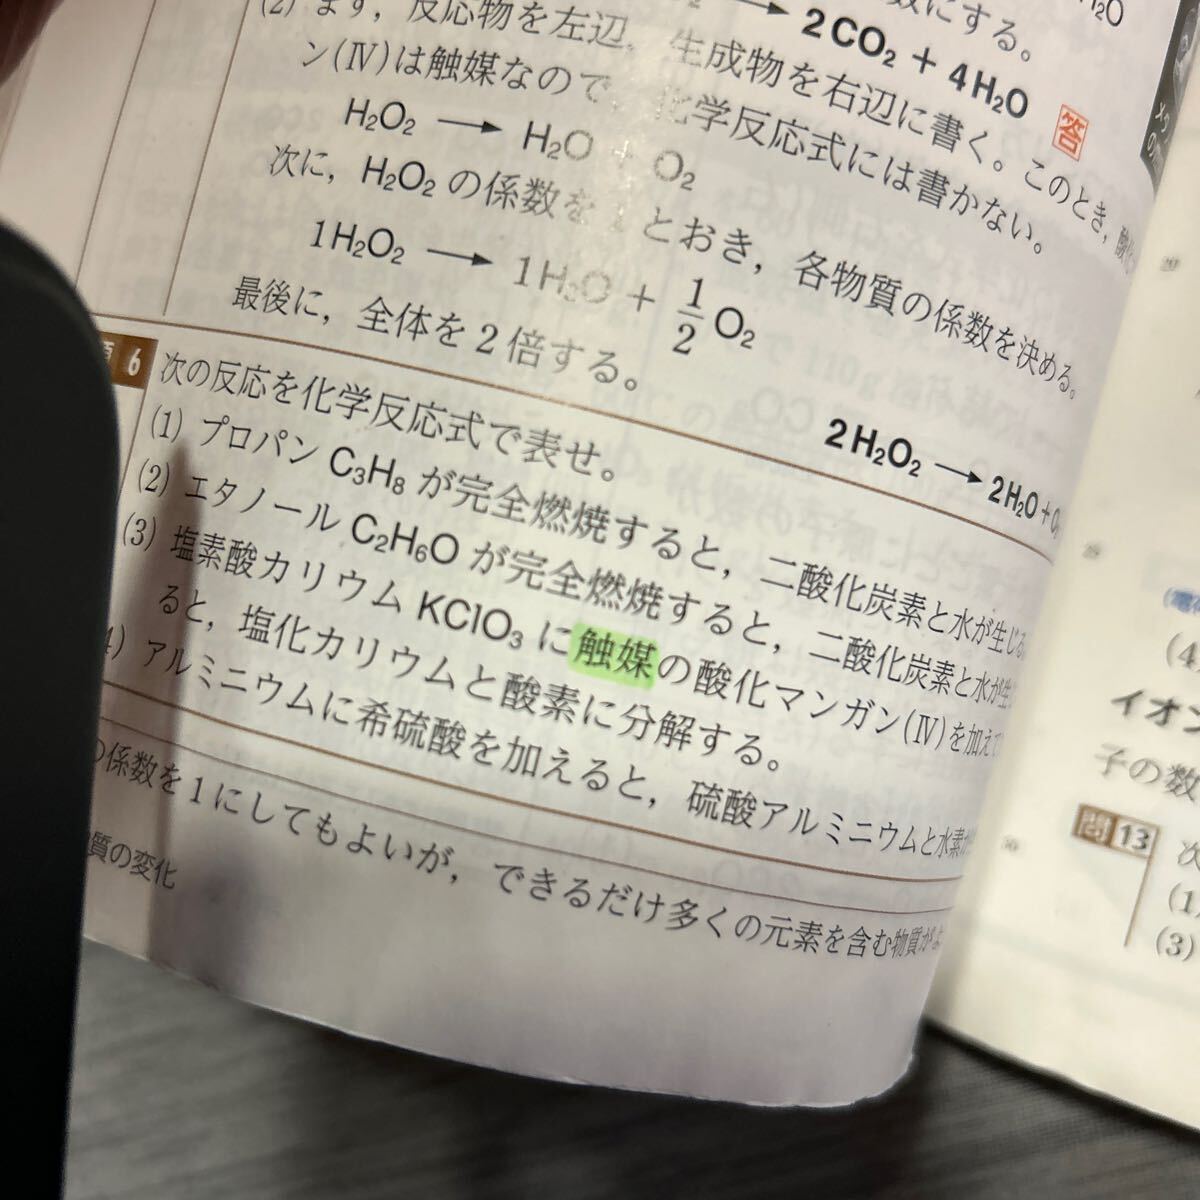 数にする。
2CO₂ + 4H₂O 答
(2) まず，反応物を左辺，生成物を右辺に書く。このとき，酸化
ン(Ⅳ)は触媒なので 化学反応式には書かない。
H₂O₂ ⟶ H₂O + O₂
次に，H₂O₂ の係数を 1 とおき，各物質の係数を決める。
1H₂O₂ ⟶ 1H₂O + 1/2 O₂
最後に，全体を2倍する。
2H₂O₂ ⟶ 2H₂O + O₂
6 次の反応を化学反応式で表せ。
(1) プロパン C₃H₈ が完全燃焼すると，二酸化炭素と水が生じる
(2) エタノール C₂H₆O が完全燃焼すると，二酸化炭素と水が生
(3) 塩素酸カリウム KClO₃ に触媒の酸化マンガン(Ⅳ)を加えて
ると，塩化カリウムと酸素に分解する。
4) アルミニウムに希硫酸を加えると，硫酸アルミニウムと水素が
の係数を1にしてもよいが，できるだけ多くの元素を含む物質が
質の変化
(4
イオン
子の数
問13 次
(1
(3)